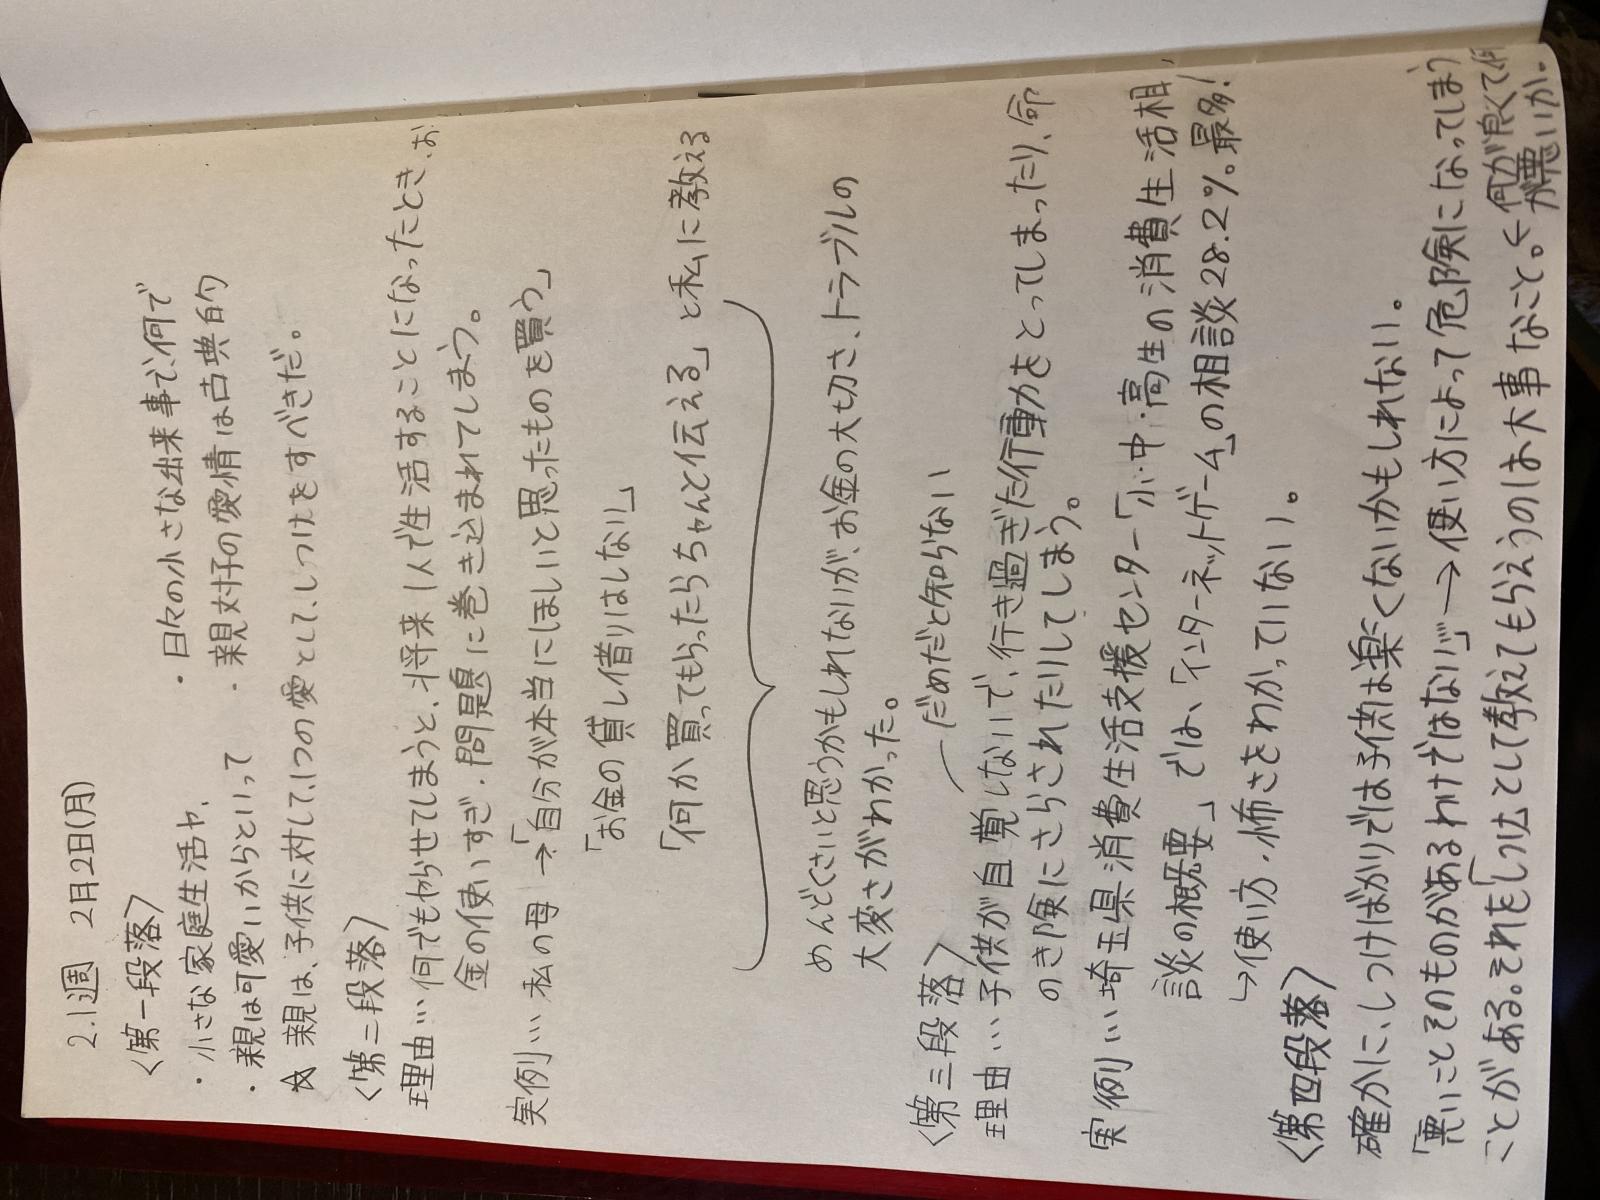 2.1週 2月2日(月)
<第一段落>
・小さな家庭生活や、 ・日々の小さな出来事で、何で
・親は可愛いからといって ・親対子の愛情は古典的
☆ 親は、子供に対して、1つの愛として、しつけをすべきだ。
<第二段落>
理由…何でもやらせてしまうと、将来1人で生活することになったとき、お
金の使いすぎ・問題に巻き込まれてしまう。
実例…私の母→「自分が本当にほしいと思ったものを買う」
「お金の貸し借りはしない」
「何か買ってもらったらちゃんと伝える」と私に教える
めんどくさいと思うかもしれないが、お金の大切さ、トラブルの
大変さがわかった。
<第三段落> だめだと知らない
理由…子供が自覚しないで、行き過ぎた行動をとってしまったり、命
のき険にさらされたりしてしまう。
実例…埼玉県消費生活支援センター「小・中・高生の消費生活相
談の概要」では、「インターネットゲーム」の相談28.2%。最多!
↳使い方・怖さをわかっていない。
<第四段落>
確かに、しつけばかりでは子供は楽くないかもしれない。
「悪いことそのものがあるわけではない」→使い方によって危険になってしまう
ことがある。それを「しつけ」として教えてもらえうのは大事なこと。←何が良くて何
が悪いか。